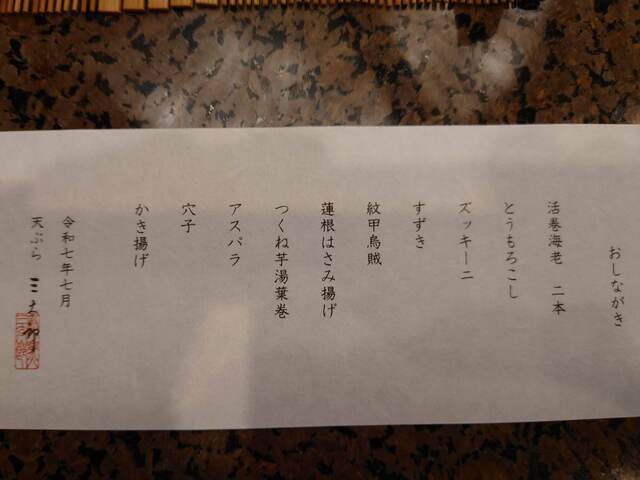 おしながき
活巻海老　二本
とうもろこし
ズッキーニ
すずき
紋甲烏賊
蓮根はさみ揚げ
つくね芋湯葉巻
アスパラ
穴子
かき揚げ
令和七年七月
天ぷら